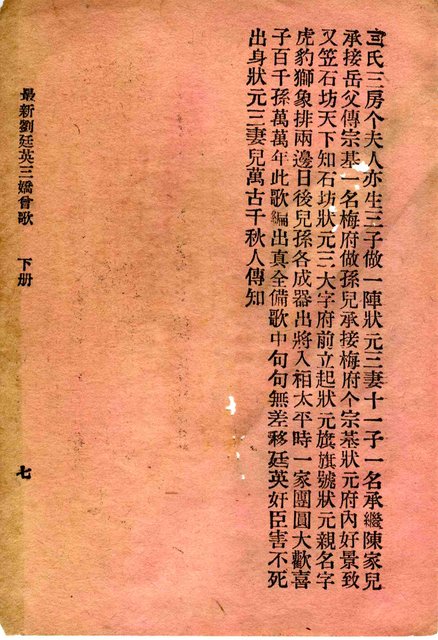 氏三房个夫人亦生三子做一陣狀元三妻十一子一名承繼陳家兒
承接岳父傳宗基一名梅府做孫兒承接梅府个宗基狀元府內好景致
又笠石坊天下知石坊狀元三大字府前立起狀元旗旗號狀元親名字
虎豹獅象排兩邊日後兒孫各成器出將入相太平時一家團圓大歡喜
子百千孫萬萬年此歌編出真全備歌中句句無差移廷英奸臣害不死
出身狀元三妻兒萬古千秋人傳知
最新劉廷英三嬌會歌 下册
七